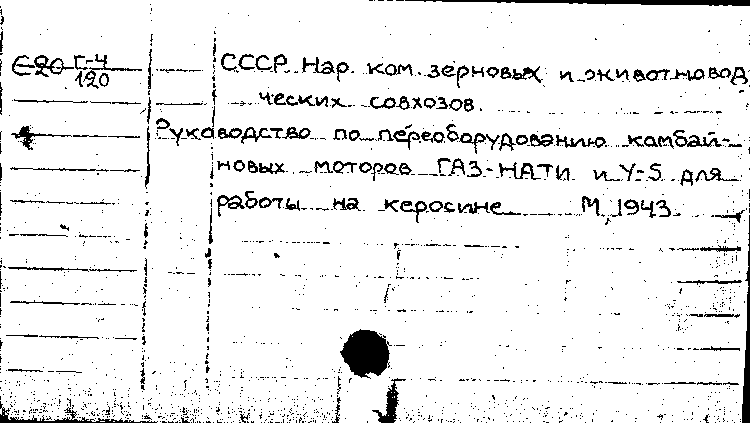 Е20 Г-4
120
СССР. Нар. ком. зерновых и животновод
ческих совхозов.
Руководство по переоборудованию комбай-
новых моторов ГАЗ-НАТИ и У-5 для
работы на керосине М, 1943.